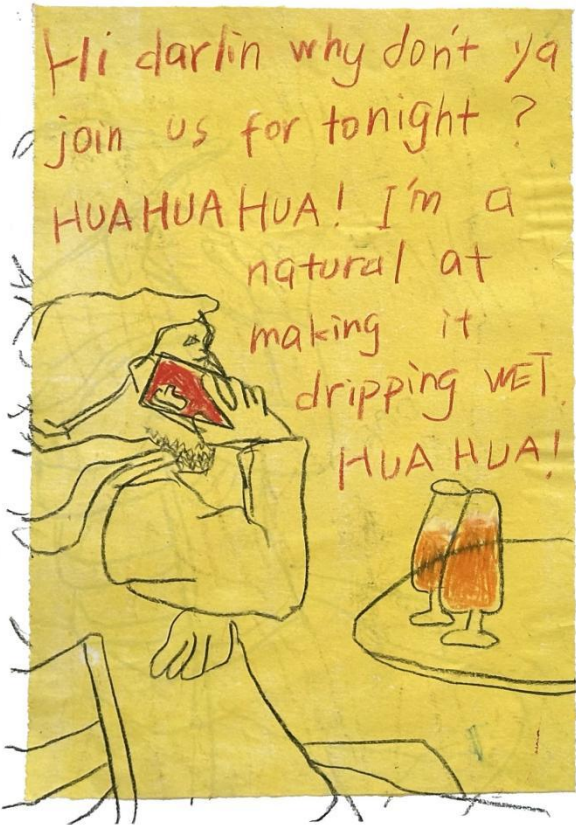 Hi darlin why don't ya
join us for tonight ?
HUAHUAHUA! I'm a
natural at
making it
dripping WET.
HUA HUA!